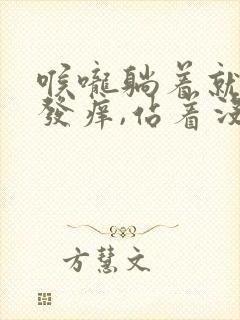 喉嚨躺着就
發痒,佔着沒
方慧文